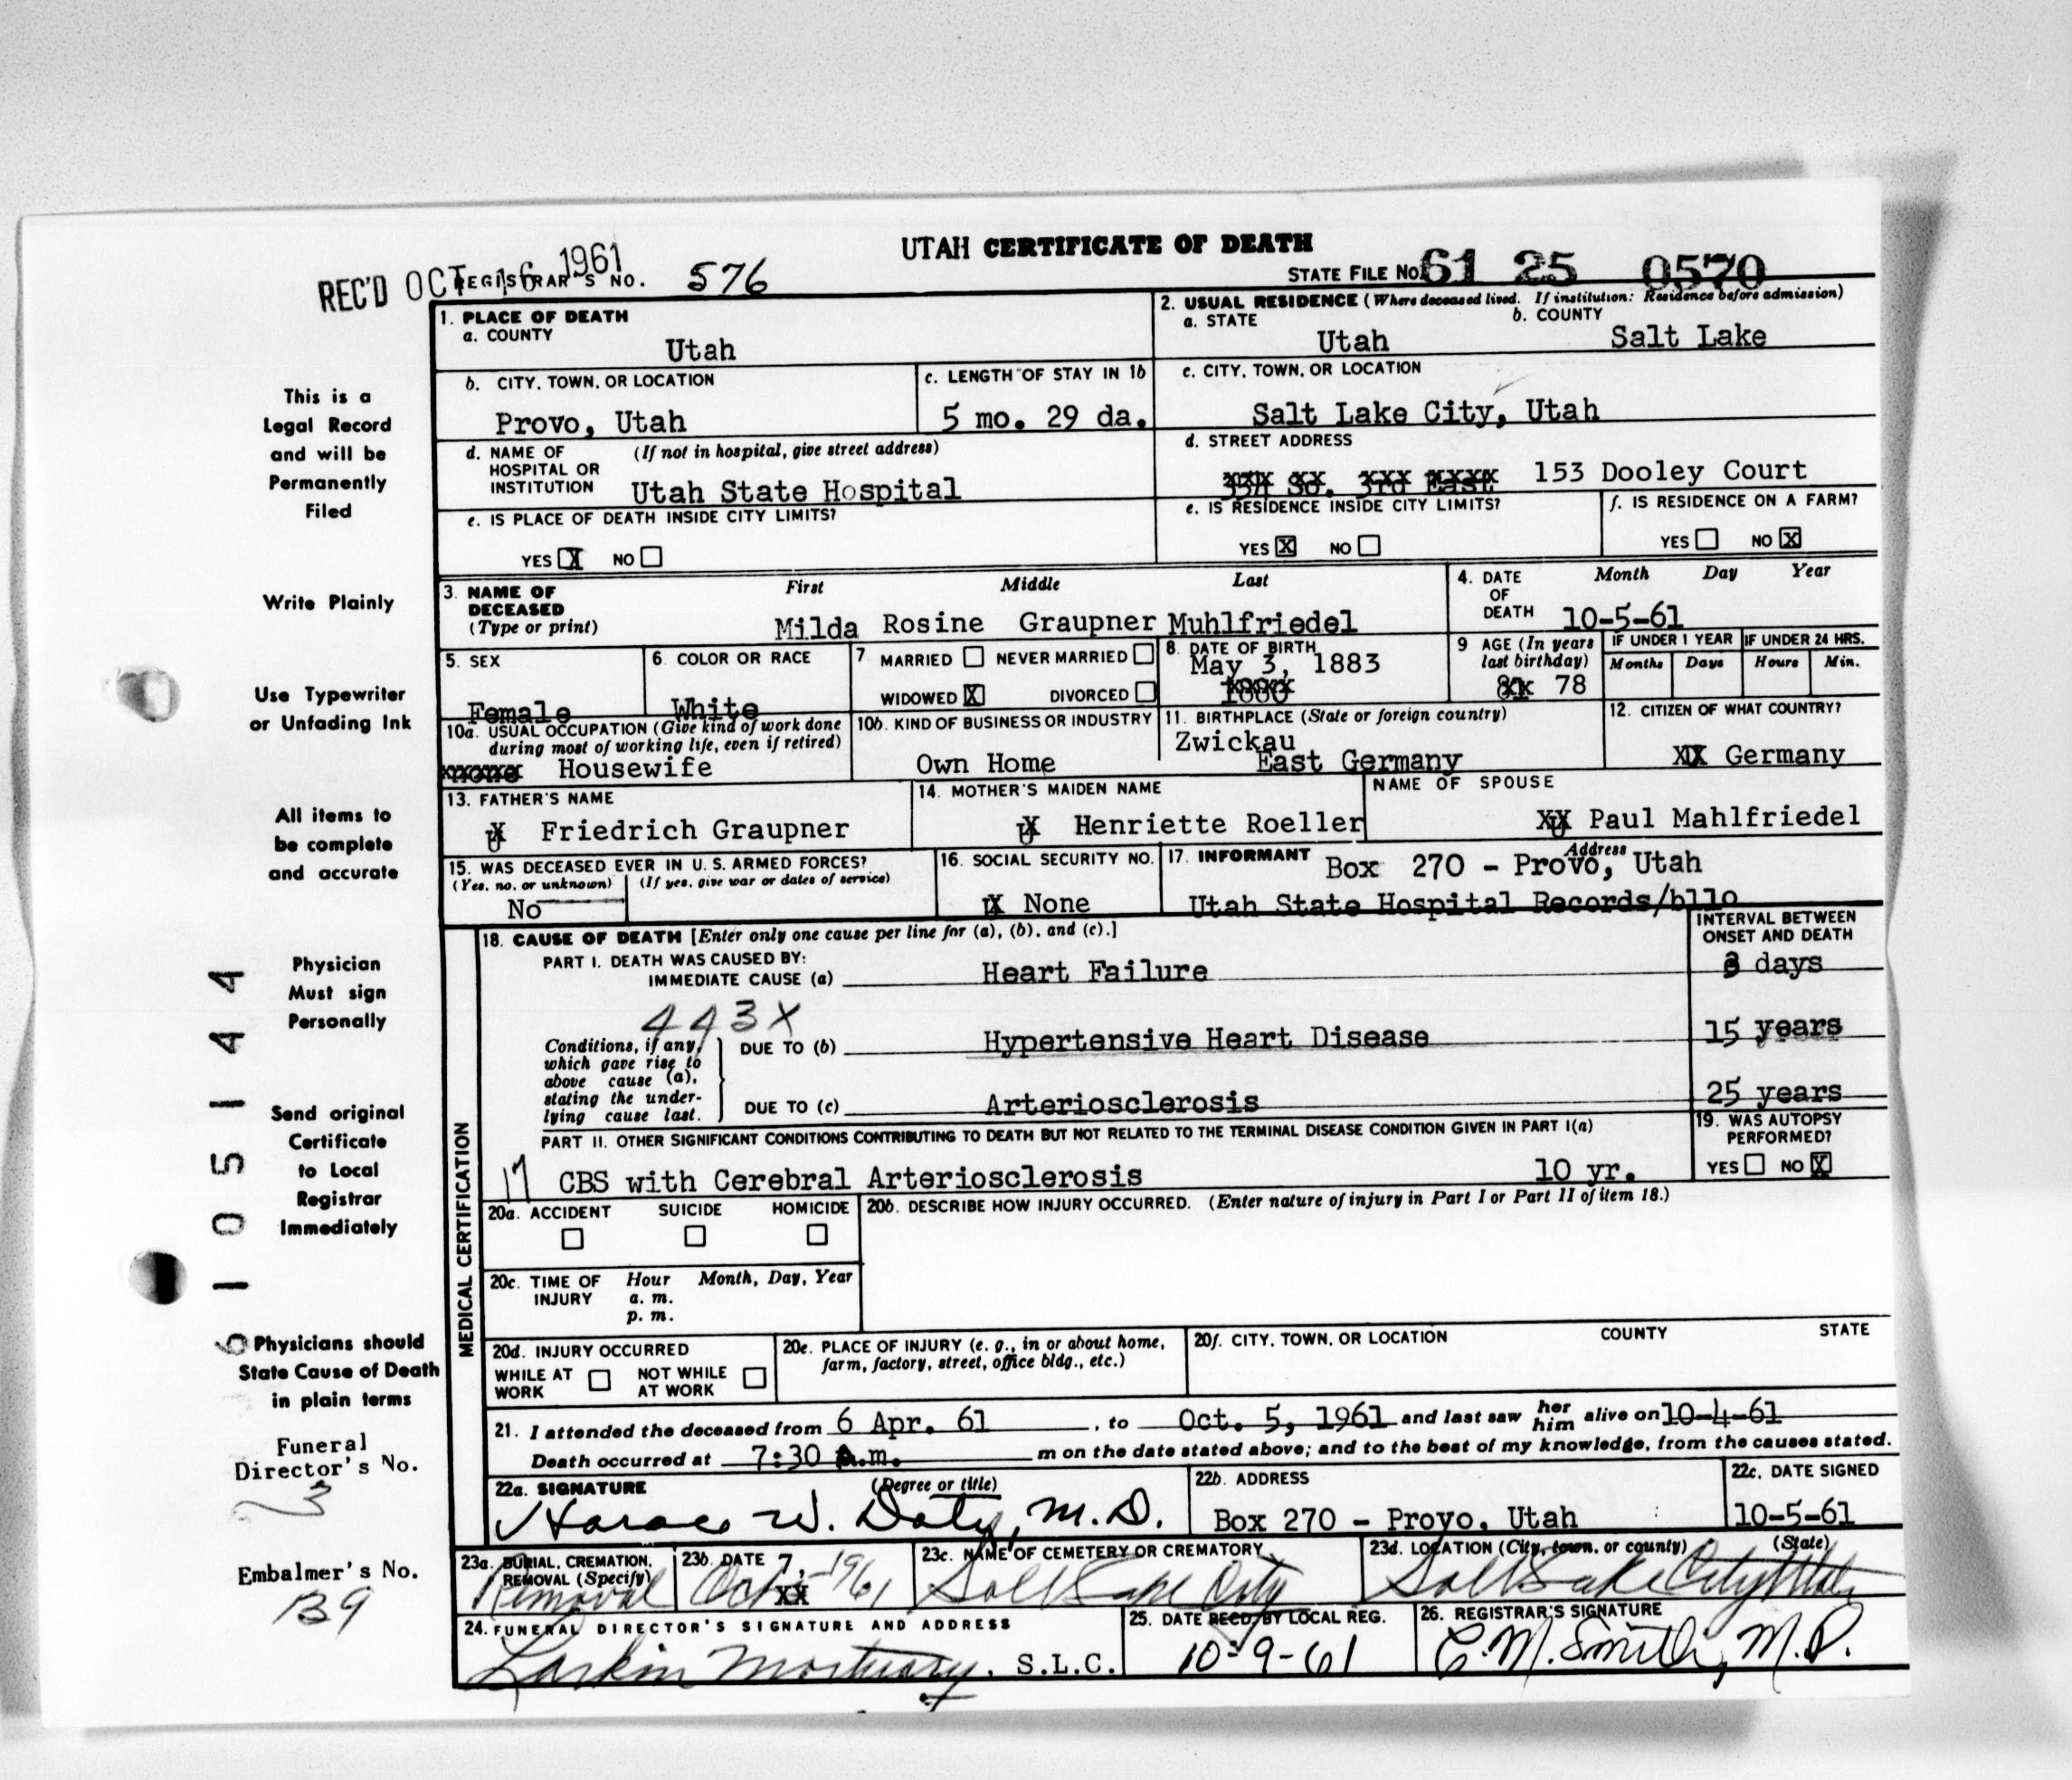 UTAH CERTIFICATE OF DEATH
REC'D OCT 16 1961
REGISTRAR'S NO. 576
STATE FILE NO. 61 25 0570
1. PLACE OF DEATH
a. COUNTY
Utah
2. USUAL RESIDENCE (Where deceased lived. If institution: Residence before admission)
a. STATE
Utah
b. COUNTY
Salt Lake
b. CITY, TOWN, OR LOCATION
Provo, Utah
c. LENGTH OF STAY IN 1b
5 mo. 29 da.
c. CITY, TOWN, OR LOCATION
Salt Lake City, Utah
d. NAME OF HOSPITAL OR INSTITUTION
(If not in hospital, give street address)
Utah State Hospital
d. STREET ADDRESS
So. 3rd East 153 Dooley Court
e. IS PLACE OF DEATH INSIDE CITY LIMITS?
YES X NO
e. IS RESIDENCE INSIDE CITY LIMITS?
YES X NO
f. IS RESIDENCE ON A FARM?
YES NO X
3. NAME OF DECEASED
(Type or print)
First Middle Last
Milda Rosine Graupner Muhlfriedel
4. DATE OF DEATH
Month Day Year
10-5-61
5. SEX
Female
6. COLOR OR RACE
White
7. MARRIED NEVER MARRIED
WIDOWED X DIVORCED
8. DATE OF BIRTH
May 3, 1883
1880
9 AGE (In years last birthday)
78
IF UNDER 1 YEAR
Months Days
IF UNDER 24 HRS.
Hours Min.
10a. USUAL OCCUPATION (Give kind of work done
during most of working life, even if retired)
none Housewife
10b. KIND OF BUSINESS OR INDUSTRY
Own Home
11. BIRTHPLACE (State or foreign country)
Zwickau
East Germany
12. CITIZEN OF WHAT COUNTRY?
Germany
13. FATHER'S NAME
Friedrich Graupner
14. MOTHER'S MAIDEN NAME
Henriette Roeller
NAME OF SPOUSE
Paul Mahlfriedel
15. WAS DECEASED EVER IN U. S. ARMED FORCES?
(Yes, no, or unknown) (If yes, give war or dates of service)
No
16. SOCIAL SECURITY NO.
None
17. INFORMANT Address
Box 270 - Provo, Utah
Utah State Hospital Records/bllo
MEDICAL CERTIFICATION
18. CAUSE OF DEATH [Enter only one cause per line for (a), (b), and (c).]
INTERVAL BETWEEN ONSET AND DEATH
PART I. DEATH WAS CAUSED BY:
IMMEDIATE CAUSE (a) Heart Failure
days
443X
Conditions, if any,
which gave rise to
above cause (a),
stating the under-
lying cause last.
DUE TO (b) Hypertensive Heart Disease
15 years
DUE TO (c) Arteriosclerosis
25 years
PART II. OTHER SIGNIFICANT CONDITIONS CONTRIBUTING TO DEATH BUT NOT RELATED TO THE TERMINAL DISEASE CONDITION GIVEN IN PART I(a)
17 CBS with Cerebral Arteriosclerosis 10 yr.
19. WAS AUTOPSY PERFORMED?
YES NO X
20a. ACCIDENT SUICIDE HOMICIDE
20b. DESCRIBE HOW INJURY OCCURRED. (Enter nature of injury in Part I or Part II of item 18.)
20c. TIME OF INJURY
Hour Month, Day, Year
a. m.
p. m.
20d. INJURY OCCURRED
WHILE AT WORK NOT WHILE AT WORK
20e. PLACE OF INJURY (e. g., in or about home,
farm, factory, street, office bldg., etc.)
20f. CITY, TOWN, OR LOCATION COUNTY STATE
21. I attended the deceased from 6 Apr. 61, to Oct. 5, 1961 and last saw her him alive on 10-4-61
Death occurred at 7:30 A.m. m on the date stated above; and to the best of my knowledge, from the causes stated.
22a. SIGNATURE (Degree or title)
Horace W. Doty, M.D.
22b. ADDRESS
Box 270 - Provo, Utah
22c. DATE SIGNED
10-5-61
23a. BURIAL, CREMATION, REMOVAL (Specify)
Removal
23b. DATE
Oct 7, 1961
XX
23c. NAME OF CEMETERY OR CREMATORY
Salt Lake City
23d. LOCATION (City, town, or county) (State)
Salt Lake City Utah
24. FUNERAL DIRECTOR'S SIGNATURE AND ADDRESS
Larkin Mortuary, S.L.C.
25. DATE RECD. BY LOCAL REG.
10-9-61
26. REGISTRAR'S SIGNATURE
C. M. Smith, M.D.
This is a
Legal Record
and will be
Permanently
Filed
Write Plainly
Use Typewriter
or Unfading Ink
All items to
be complete
and accurate
Physician
Must sign
Personally
Send original
Certificate
to Local
Registrar
Immediately
Physicians should
State Cause of Death
in plain terms
Funeral
Director's No.
3
Embalmer's No.
139
6 1 105 144